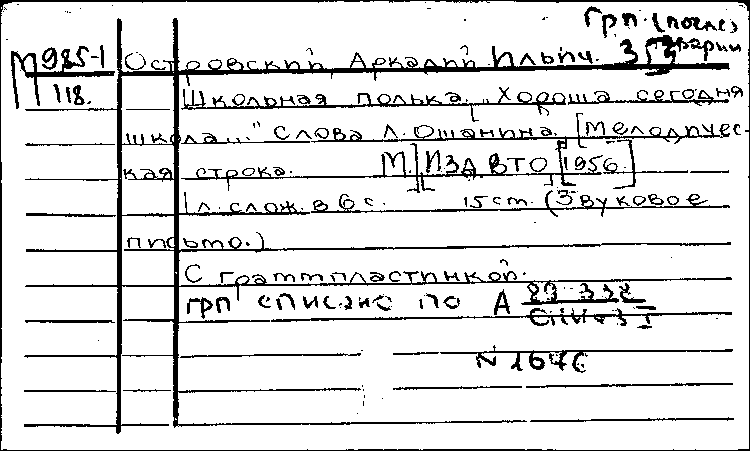 ГРП (после
аварии
М 985-1 Островский, Аркадий Ильич. 355
118. Школьная полька. „Хороша сегодня
школа..." Слова Л. Ошанина. [Мелодичес-
кая строка. М.] [Изд. ВТО] [1956.]
1 л. слож. в 6 с. 15 см. (Звуковое
письмо.)
С граммпластинкой.
ГРП списано по А 89 338
I
N 1676